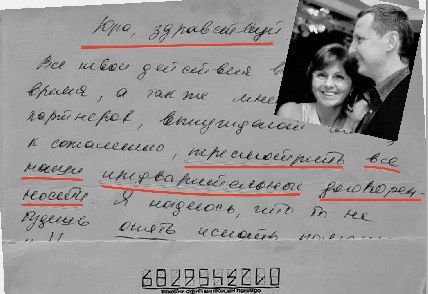 Юра, здравствуй
Все твои действия в
время, а также мне
партнеров, вынуждали
к сожалению, пересмотреть все
наши предварительные договорен-
ности. Я надеюсь, что ты не
будешь опять искать